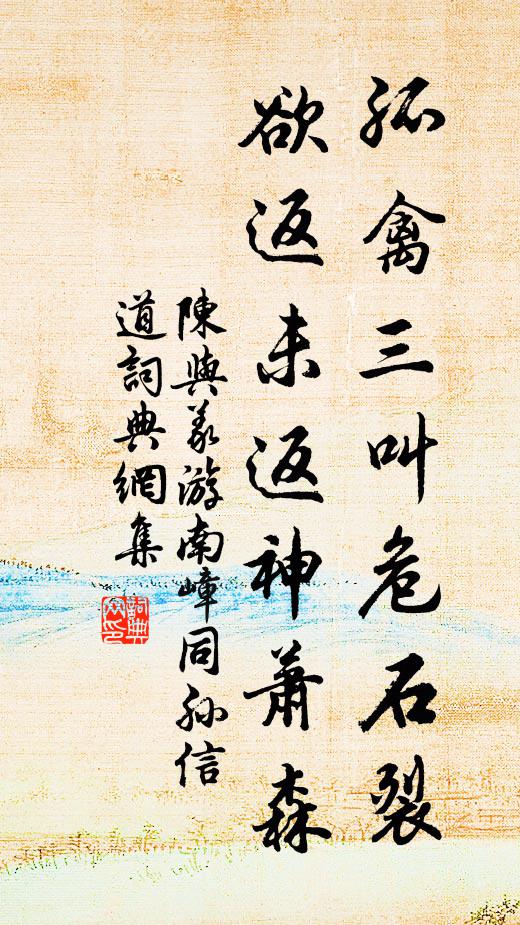 孤禽三叫危石裂
欲返未返神萧森
陳與義游南嶂同孙信
道詞典網集
詞典